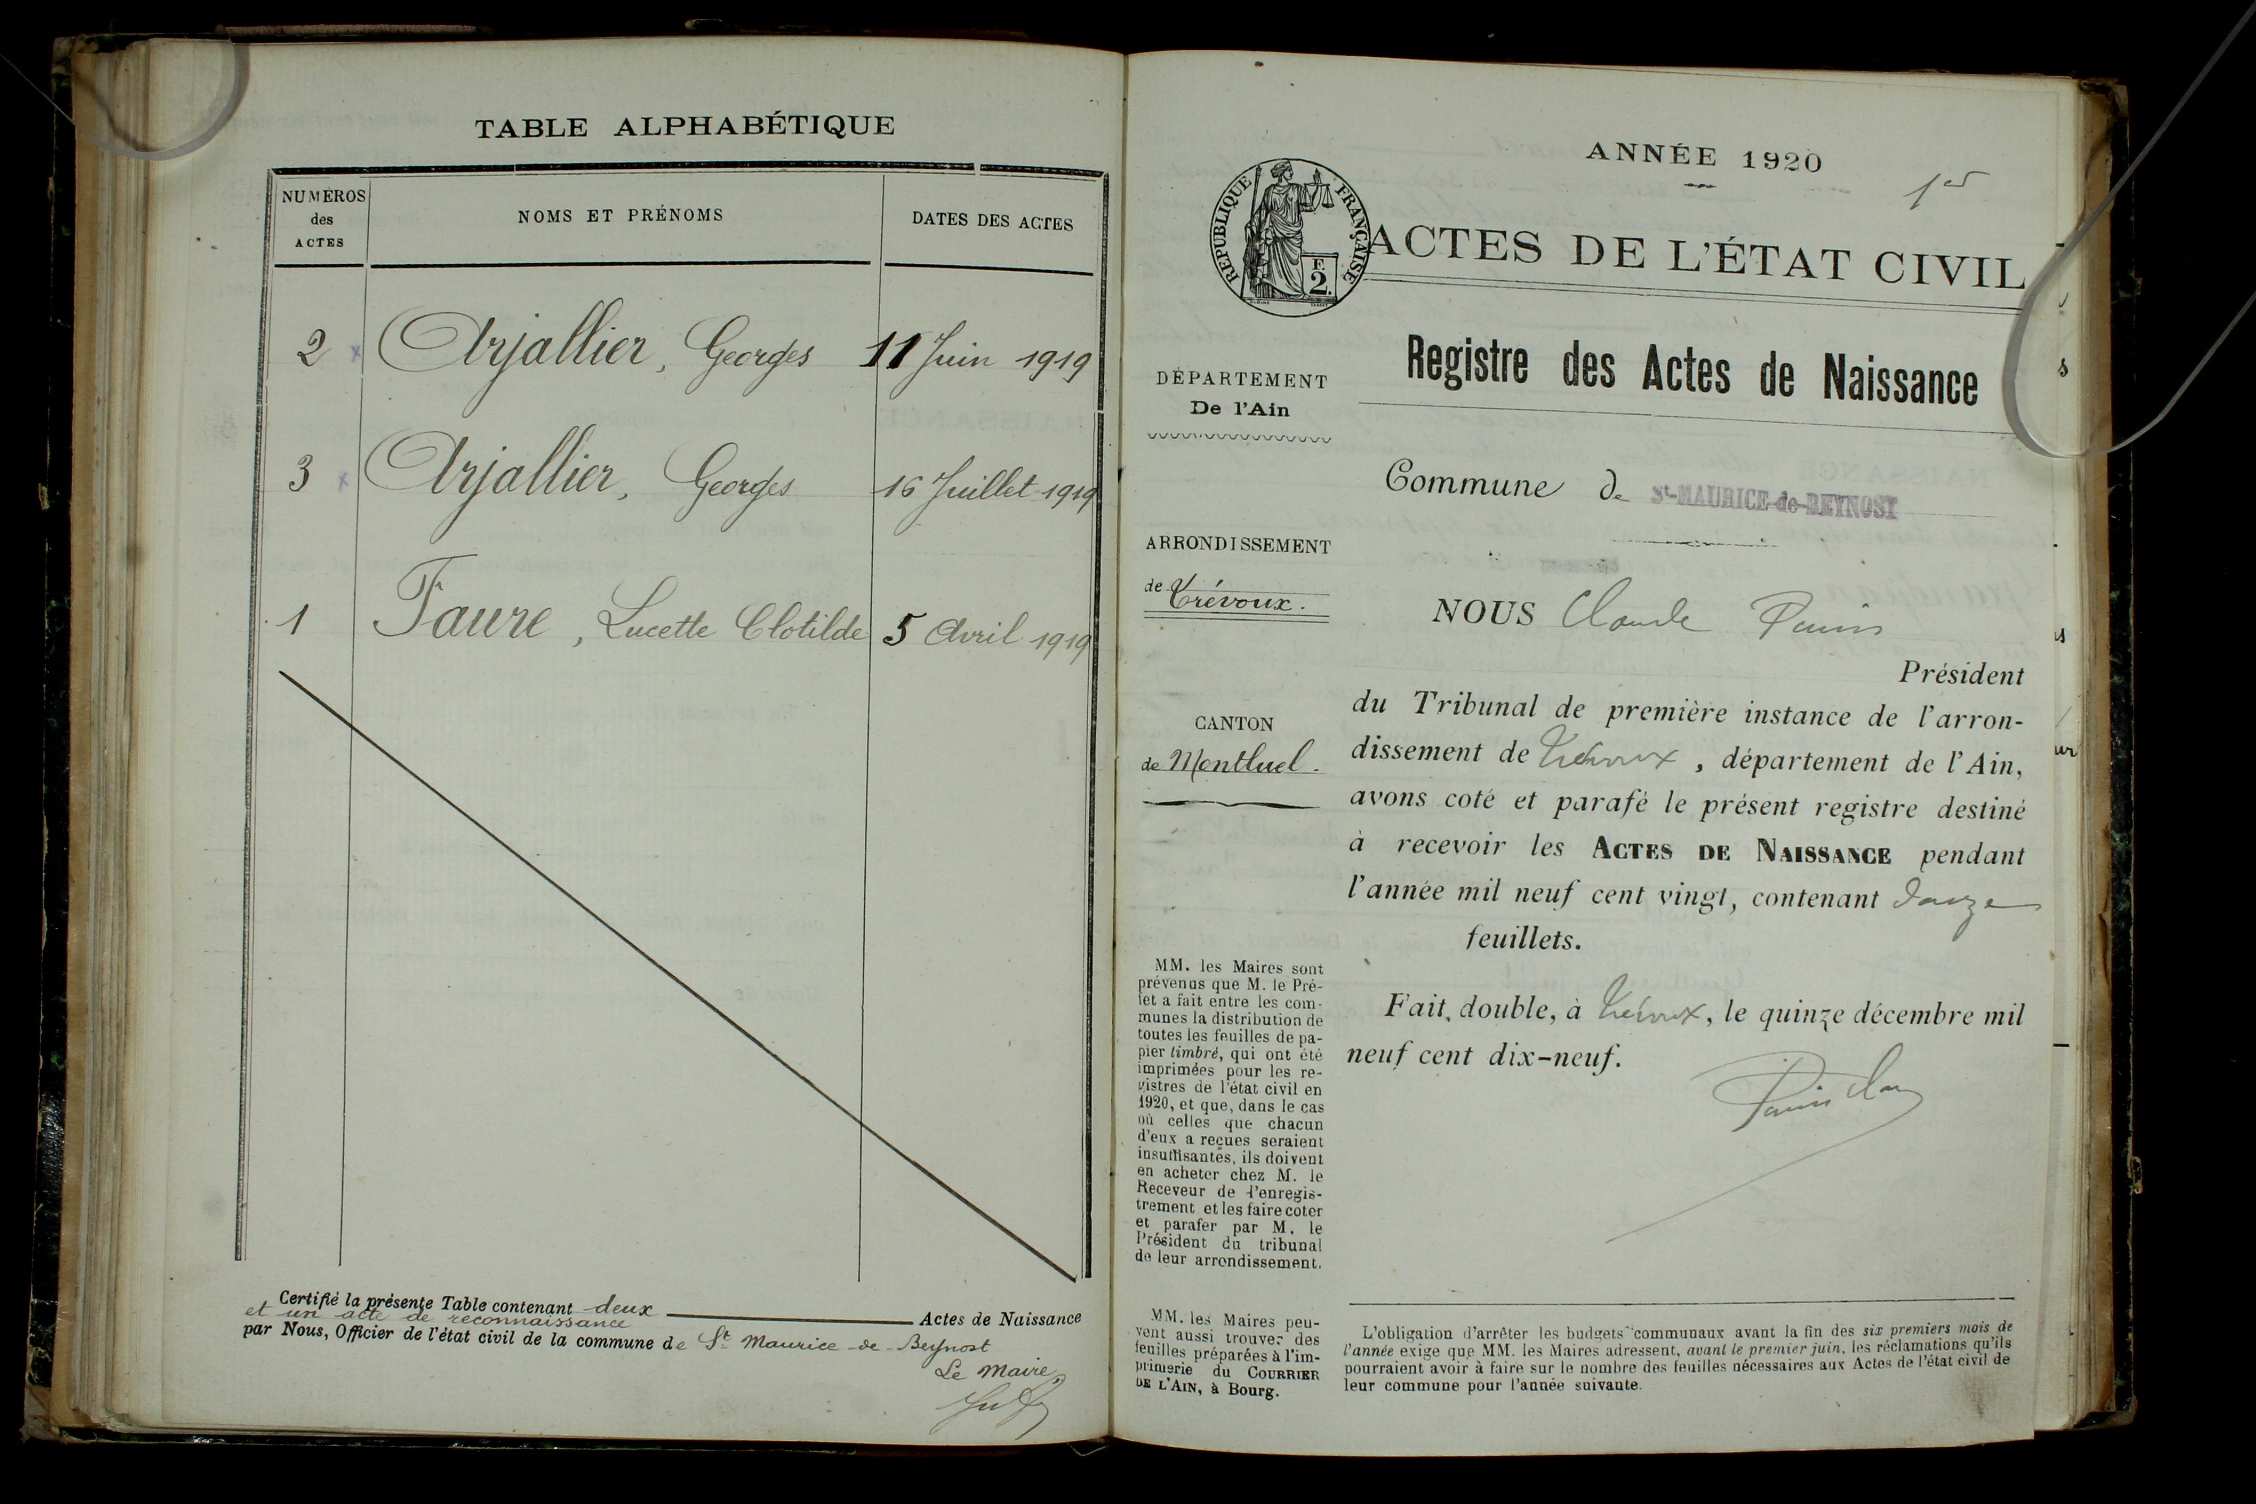 TABLE ALPHABÉTIQUE
NUMÉROS
des
ACTES
NOMS ET PRÉNOMS
DATES DES ACTES
2 Arjallier, Georges 11 Juin 1919
3 Arjallier, Georges 16 Juillet 1919
1 Faure, Lucette Clotilde 5 Avril 1919
Certifié la présente Table contenant deux Actes de Naissance
et un acte de reconnaissance
par Nous, Officier de l'état civil de la commune de St Maurice-de-Beynost
Le Maire
ANNÉE 1920
1er
RÉPUBLIQUE FRANÇAISE
F.
2.
ACTES DE L'ÉTAT CIVIL
Registre des Actes de Naissance
DÉPARTEMENT
De l'Ain
Commune de St-MAURICE-de-BEYNOST
ARRONDISSEMENT
de Trévoux.
CANTON
de Montluel.
NOUS Claude
Président
du Tribunal de première instance de l'arron-
dissement de Trévoux, département de l'Ain,
avons coté et parafé le présent registre destiné
à recevoir les ACTES DE NAISSANCE pendant
l'année mil neuf cent vingt, contenant douze
feuillets.
Fait, double, à Trévoux, le quinze décembre mil
neuf cent dix-neuf.
MM. les Maires sont
prévenus que M. le Pré-
fet a fait entre les com-
munes la distribution de
toutes les feuilles de pa-
pier timbré, qui ont été
imprimées pour les re-
gistres de l'état civil en
1920, et que, dans le cas
où celles que chacun
d'eux a reçues seraient
insuffisantes, ils doivent
en acheter chez M. le
Receveur de l'enregis-
trement et les faire coter
et parafer par M. le
Président du tribunal
de leur arrondissement.
MM. les Maires peu-
vent aussi trouver des
feuilles préparées à l'im-
primerie du COURRIER
DE L'AIN, à Bourg.
L'obligation d'arrêter les budgets communaux avant la fin des six premiers mois de
l'année exige que MM. les Maires adressent, avant le premier juin, les réclamations qu'ils
pourraient avoir à faire sur le nombre des feuilles nécessaires aux Actes de l'état civil de
leur commune pour l'année suivante.